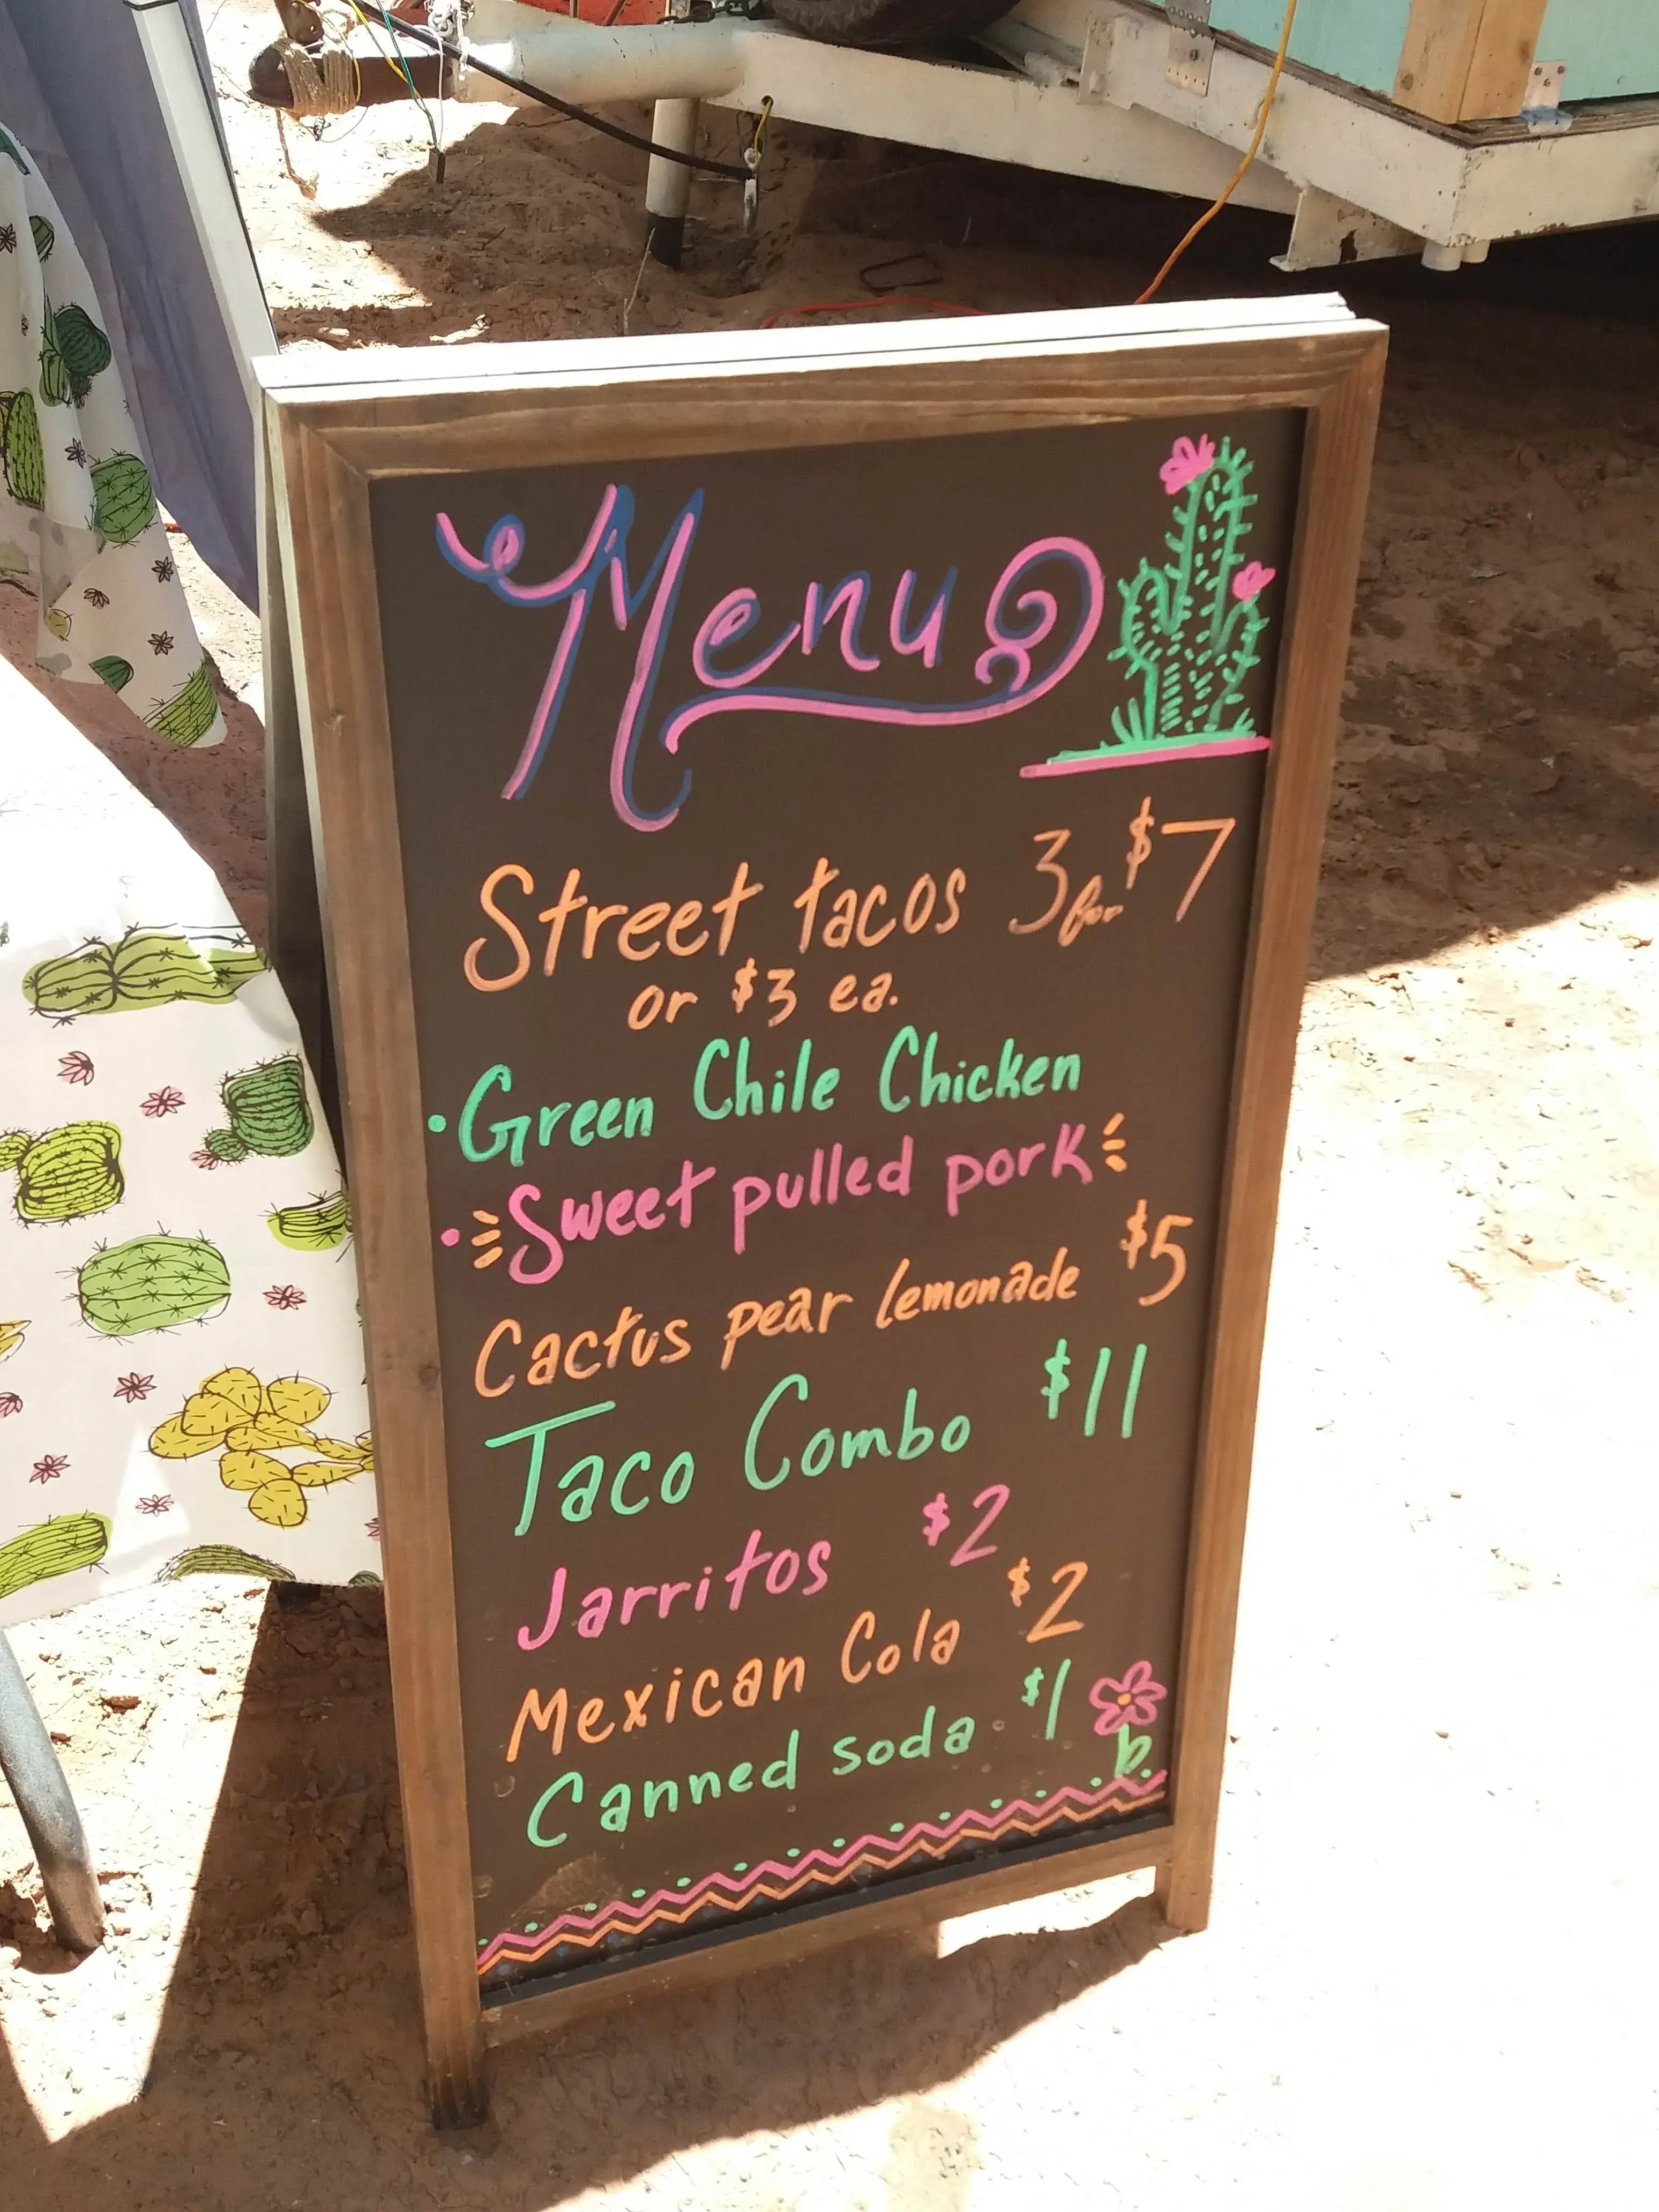 Menu
Street tacos 3 for $7
or $3 ea.
• Green Chile Chicken
• Sweet pulled pork
Cactus pear lemonade $5
Taco Combo $11
Jarritos $2
Mexican Cola $2
Canned soda $1